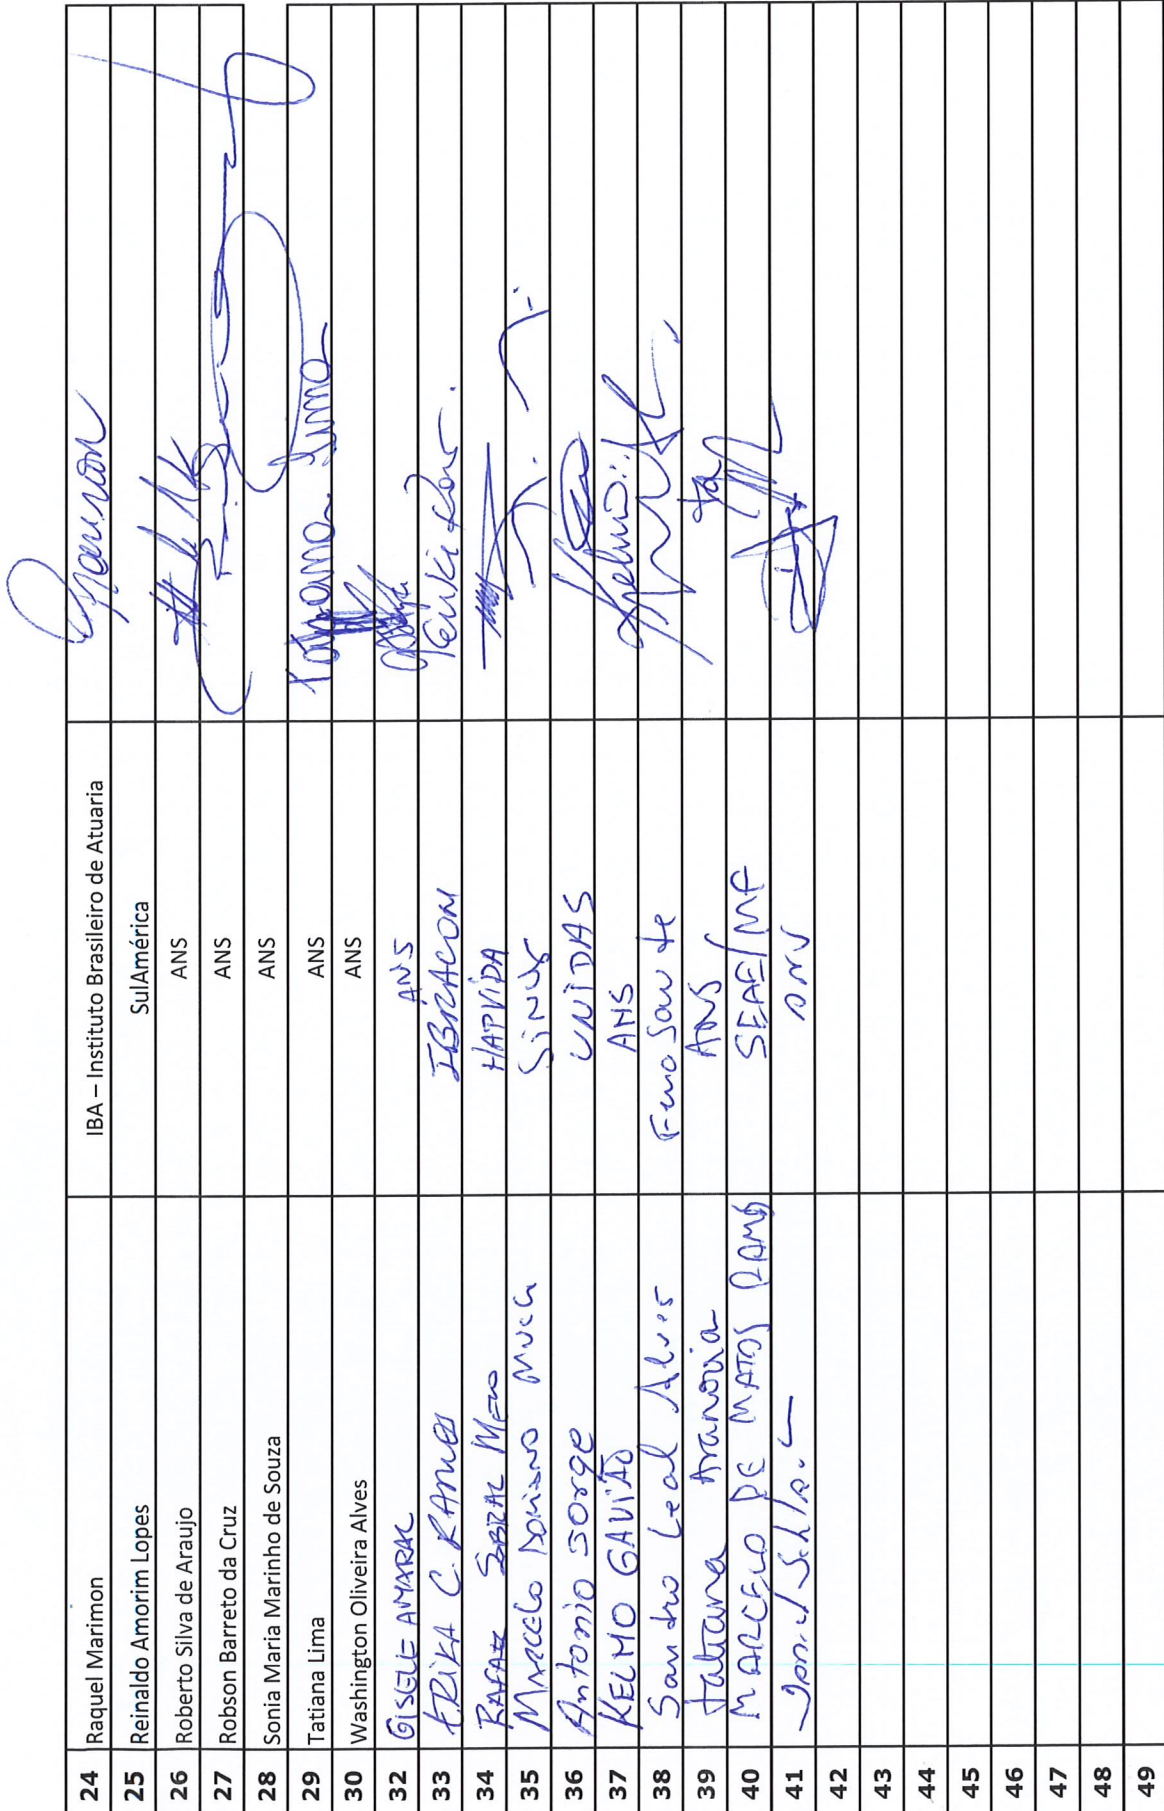 24 Raquel Marimon IBA – Instituto Brasileiro de Atuaria
25 Reinaldo Amorim Lopes SulAmérica
26 Roberto Silva de Araujo ANS
27 Robson Barreto da Cruz ANS
28 Sonia Maria Marinho de Souza ANS
29 Tatiana Lima ANS Tatiana Lima
30 Washington Oliveira Alves ANS
32 GISELE AMARAL ANS
33 ERIKA C. RAMOS IBRACON
34 RAFAEL SOBRAL MELO HAPVIDA
35 MARCELO SINOG
36 Antonio JORGE UNIDAS
37 KELMO GAVIÃO ANS
38 Sandro Leal Alves FenaSaúde
39 Tatiana Aranovia ANS
40 MARCELO DE MATOS RAMOS SEAE/MF
41
42
43
44
45
46
47
48
49